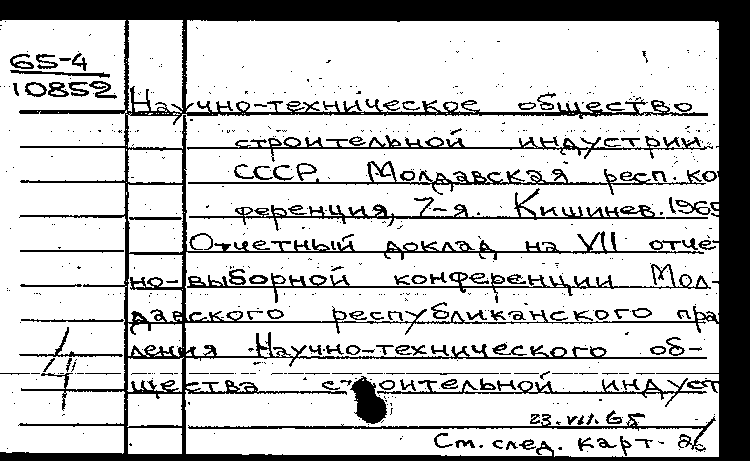 65-4
10852
Научно-техническое общество
строительной индустрии
СССР. Молдавская респ. ко
ференция, 7-я. Кишинев. 1965
Отчетный доклад на VII отче-
но-выборной конференции Мол-
давского республиканского пра
ления Научно-технического об-
щества строительной индуст
4
23.VII.65
См. след. карт.